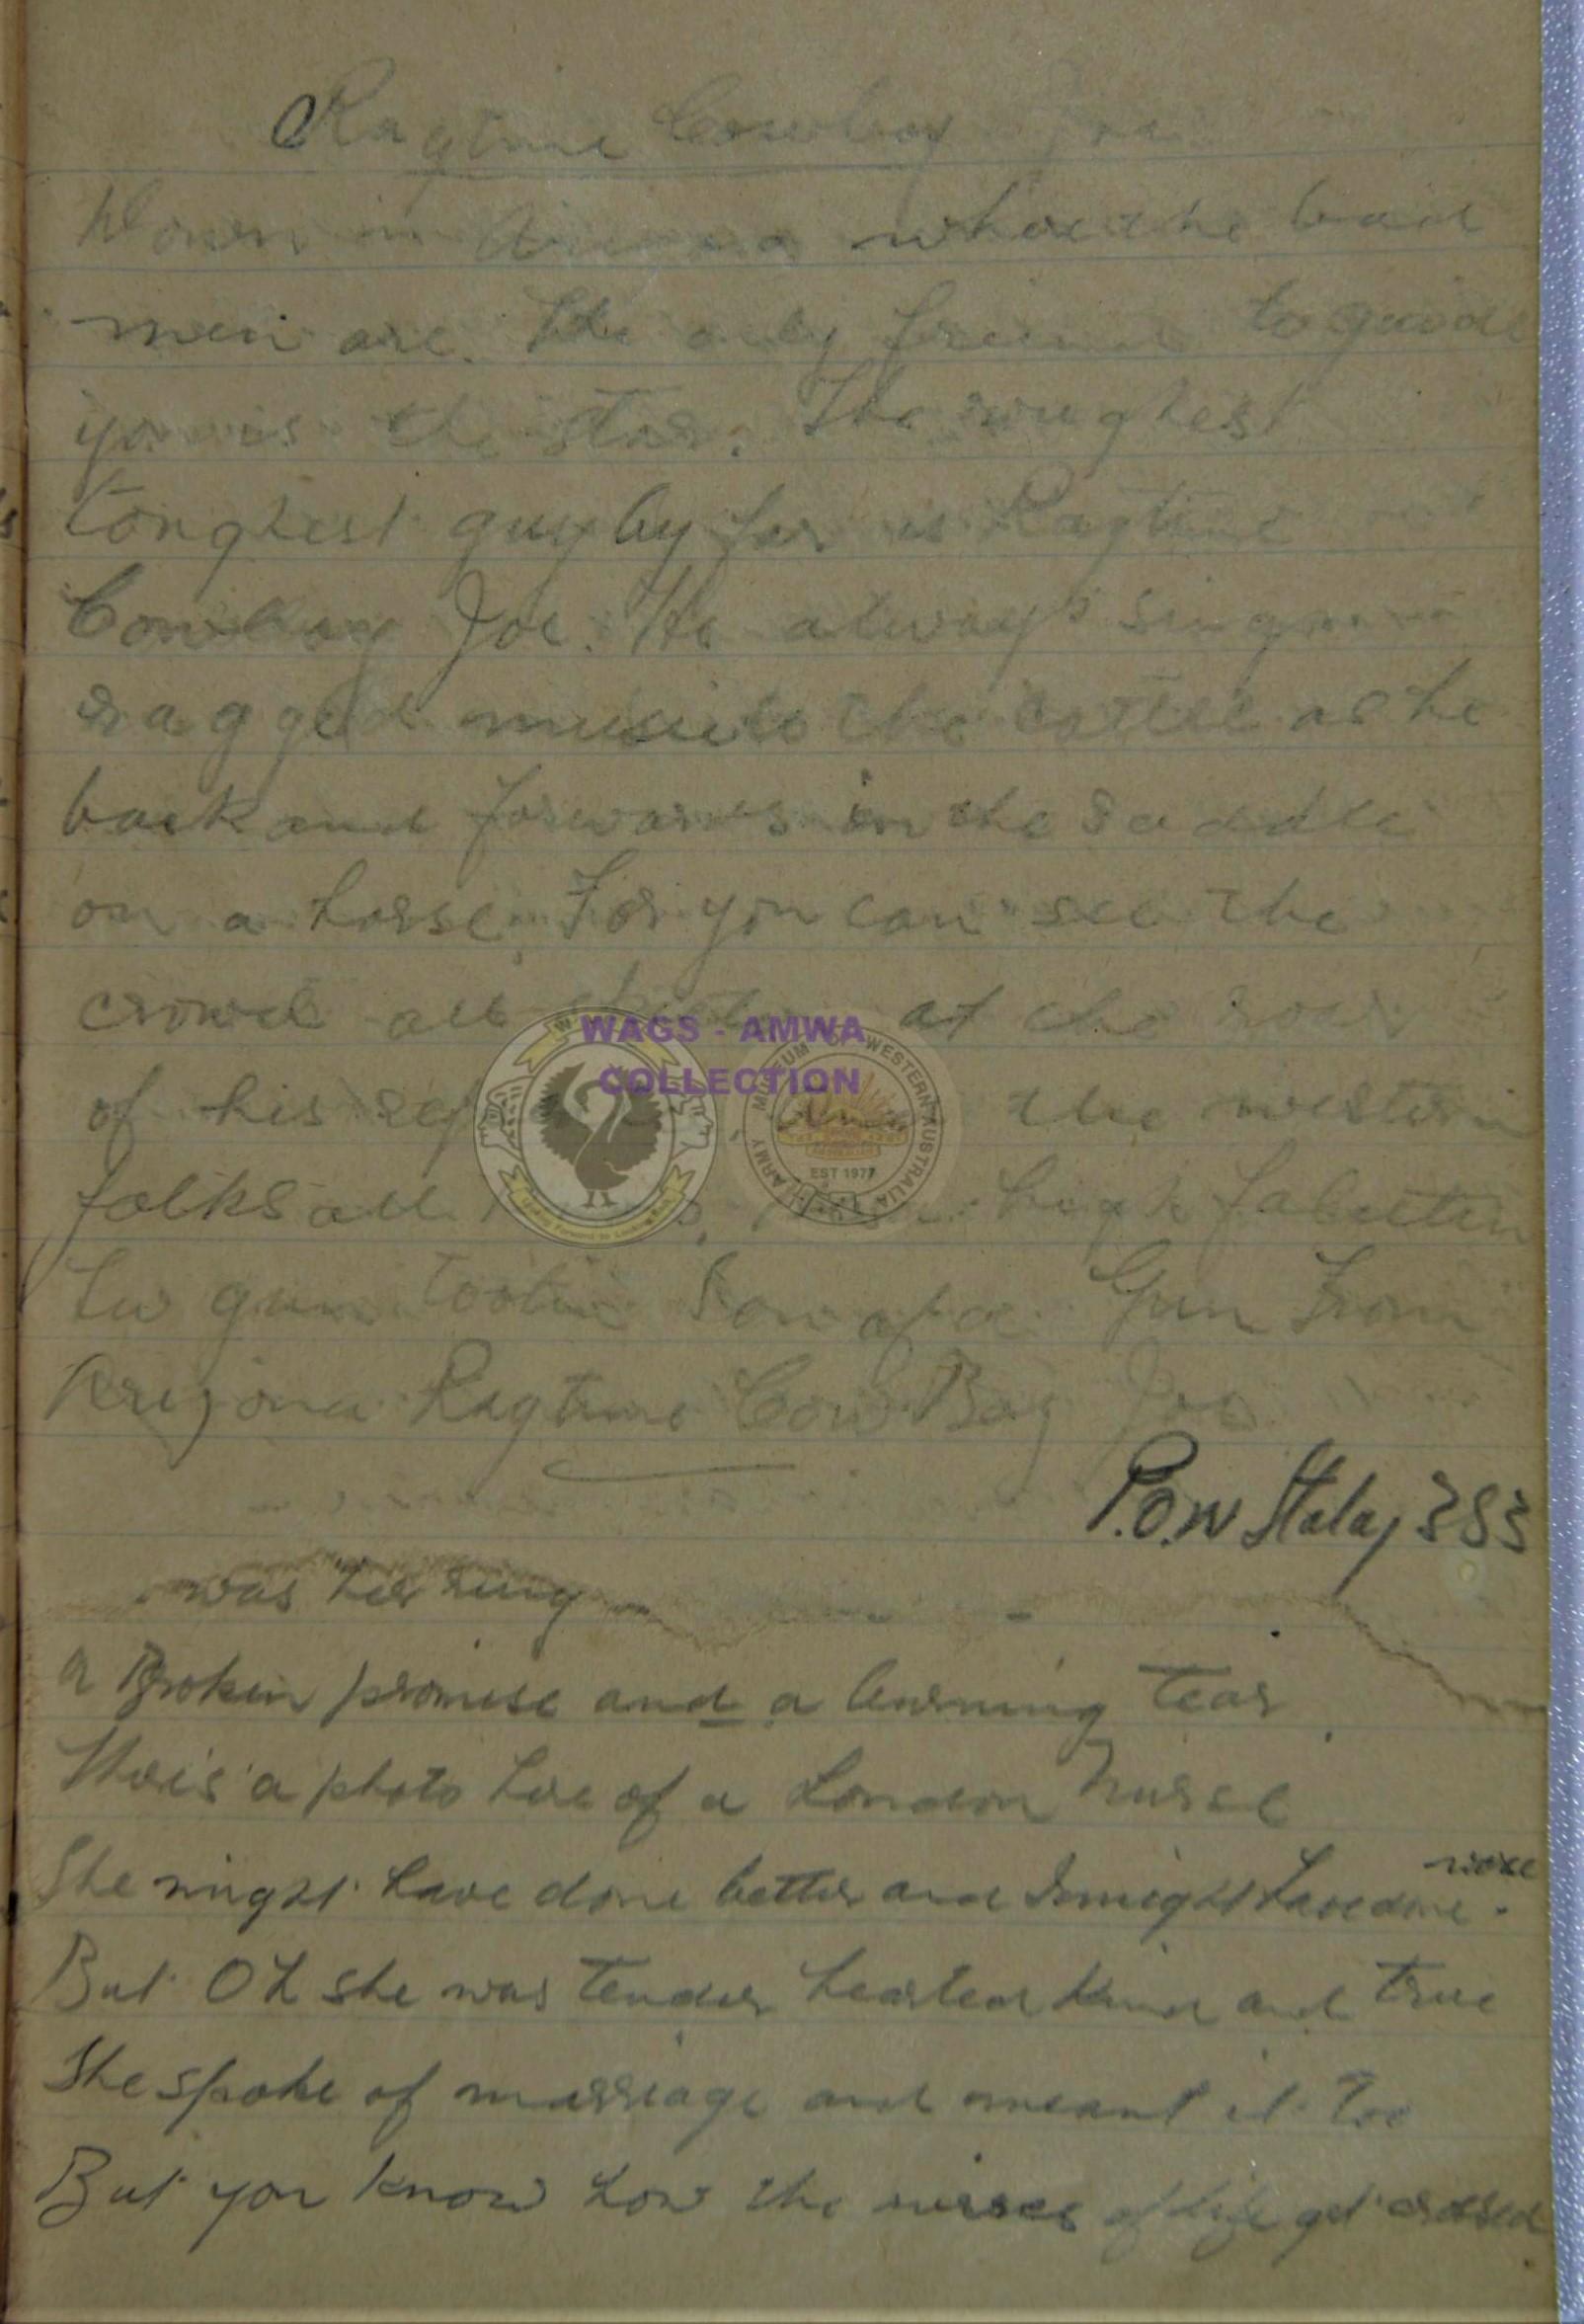 Ragtime Cowboy Joe
Down in Arizona where the bad
men are. The only friend to guide
you is the star. The roughest
toughest guy by far is Ragtime
Cowboy Joe. He always sings
ragged music to the cattle as he
back and forwards in the saddle
on a horse. For you can see the
crowd all at the roar
of his the western
folks all high falutin
tu gun tootin Son of a Gun From
Arizona Ragtime Cow Boy Joe
P.O.W Stalag 383
was her ring
A Broken promise and a burning tear
Theres a photo here of a London Nurse
She might have done better and I might have done worse
But Oh she was tender hearted kind and true
She spoke of marriage and meant it too
But you know how the wires of life get crossed
WAGS - AMWA
COLLECTION
MUSEUM OF WESTERN AUSTRALIA
ARMY
EST 1977